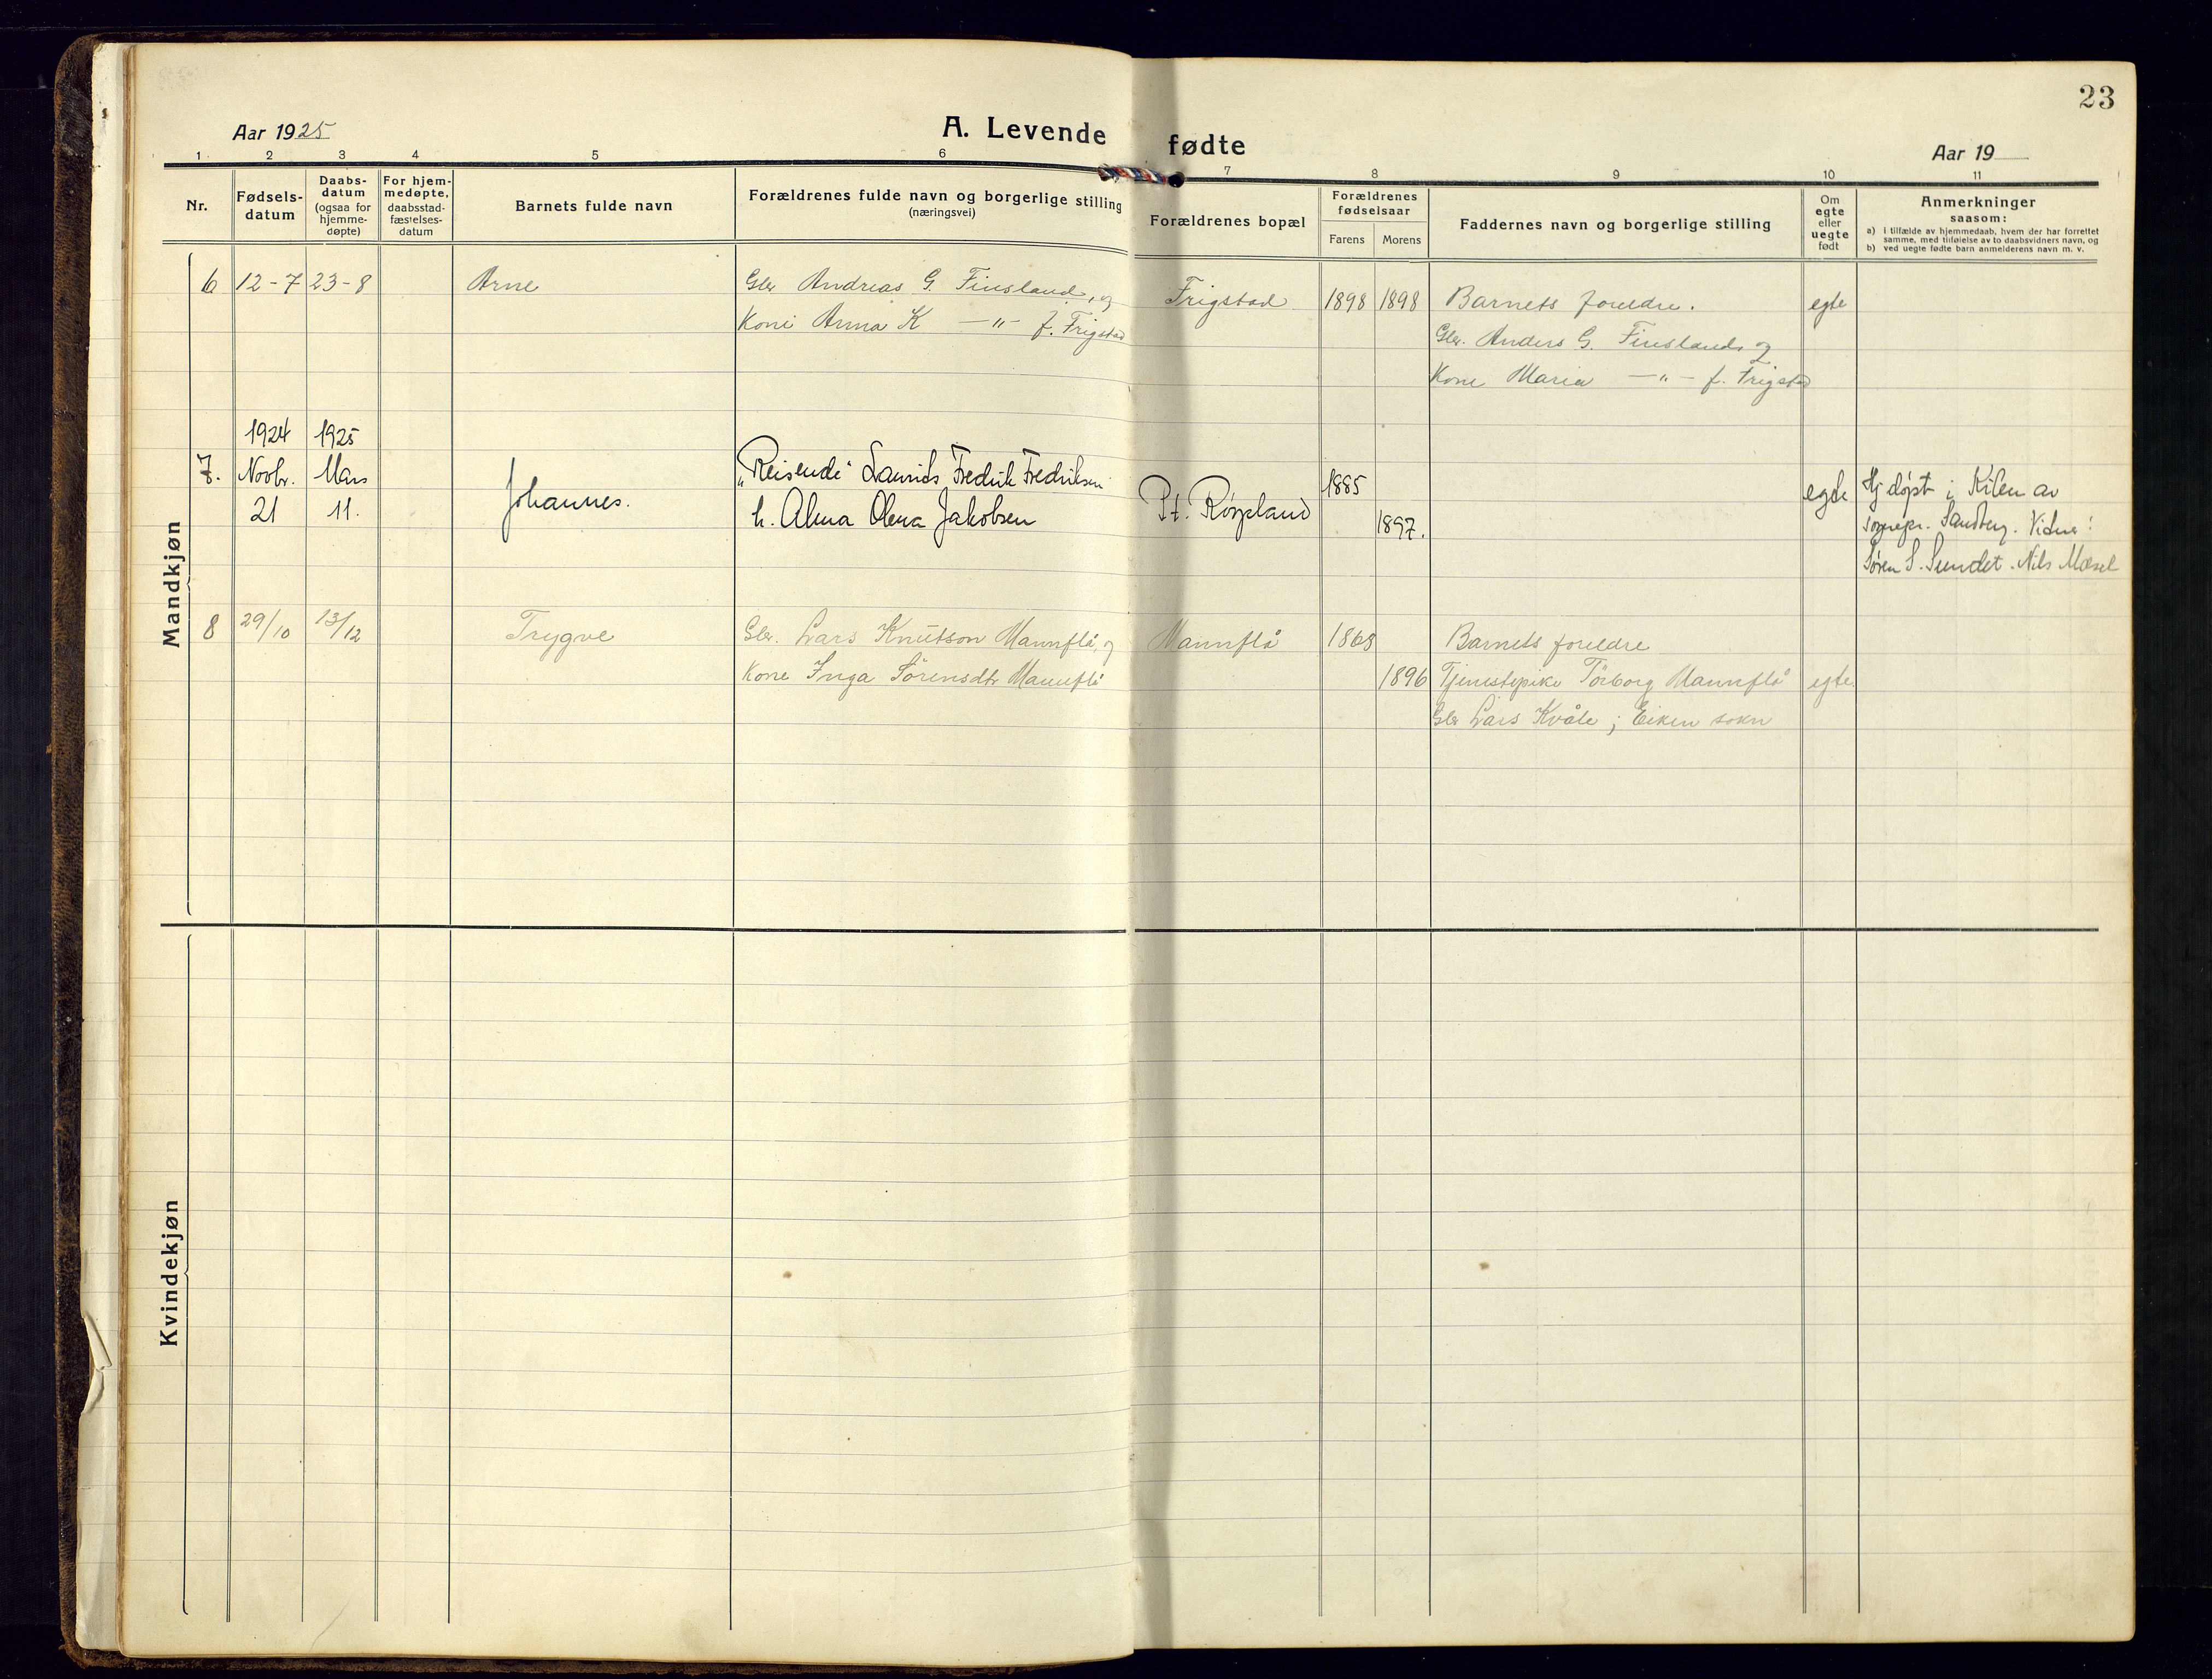 23
Aar 1925
A. Levende fødte
Aar 19
1 2 3 4 5 6 7 8 9 10 11
Nr.
Fødsels-
datum
Daabs-
datum
(ogsaa for
hjemme-
døpte)
For hjem-
medøpte,
daabsstad-
fæstelses-
datum
Barnets fulde navn
Forældrenes fulde navn og borgerlige stilling
(næringsvei)
Forældrenes bopæl
Forældrenes
fødselsaar
Farens Morens
Faddernes navn og borgerlige stilling
Om
egte
eller
uegte
født
Anmerkninger
saasom:
a) i tilfælde av hjemmedaab, hvem der har forrettet
samme, med tilføielse av to daabsvidners navn, og
b) ved uegte fødte barn anmelderens navn m. v.
Mandkjøn
6 12-7 23-8 Arne Gbr Andreas G. Finsland, og Frigstad 1898 1898 Barnets foreldre. egte
Kone Anna K —"— f. Frigstad
Gbr. Anders G. Finsland og
Kone Maria —"— f. Frigstad
1924 1925
7. Novbr. Mars Johannes. „Reisende" Laurids Fredrik Fredriksen Pt. Røypland 1885 egte Hj døpt i Kilen av
21 11. h. Alma Olena Jakobsen 1897. sognepr. Sandberg. Vidner:
Søren S. Sundet. Nils Mæsel
8 29/10 13/12 Trygve Gbr. Lars Knutson Mannflå, og Mannflå 1868 Barnets foreldre
Kone Inga Sørensdtr Mannflå 1896 Tjenestepike Torborg Mannflå egte.
Gbr Lars Kvåle ; Eiken sokn
Kvindekjøn